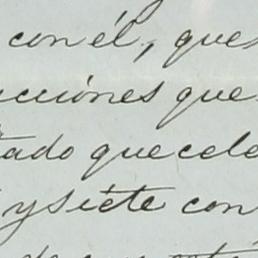 con él, que
cciónes que
tado que cele
y siéte con